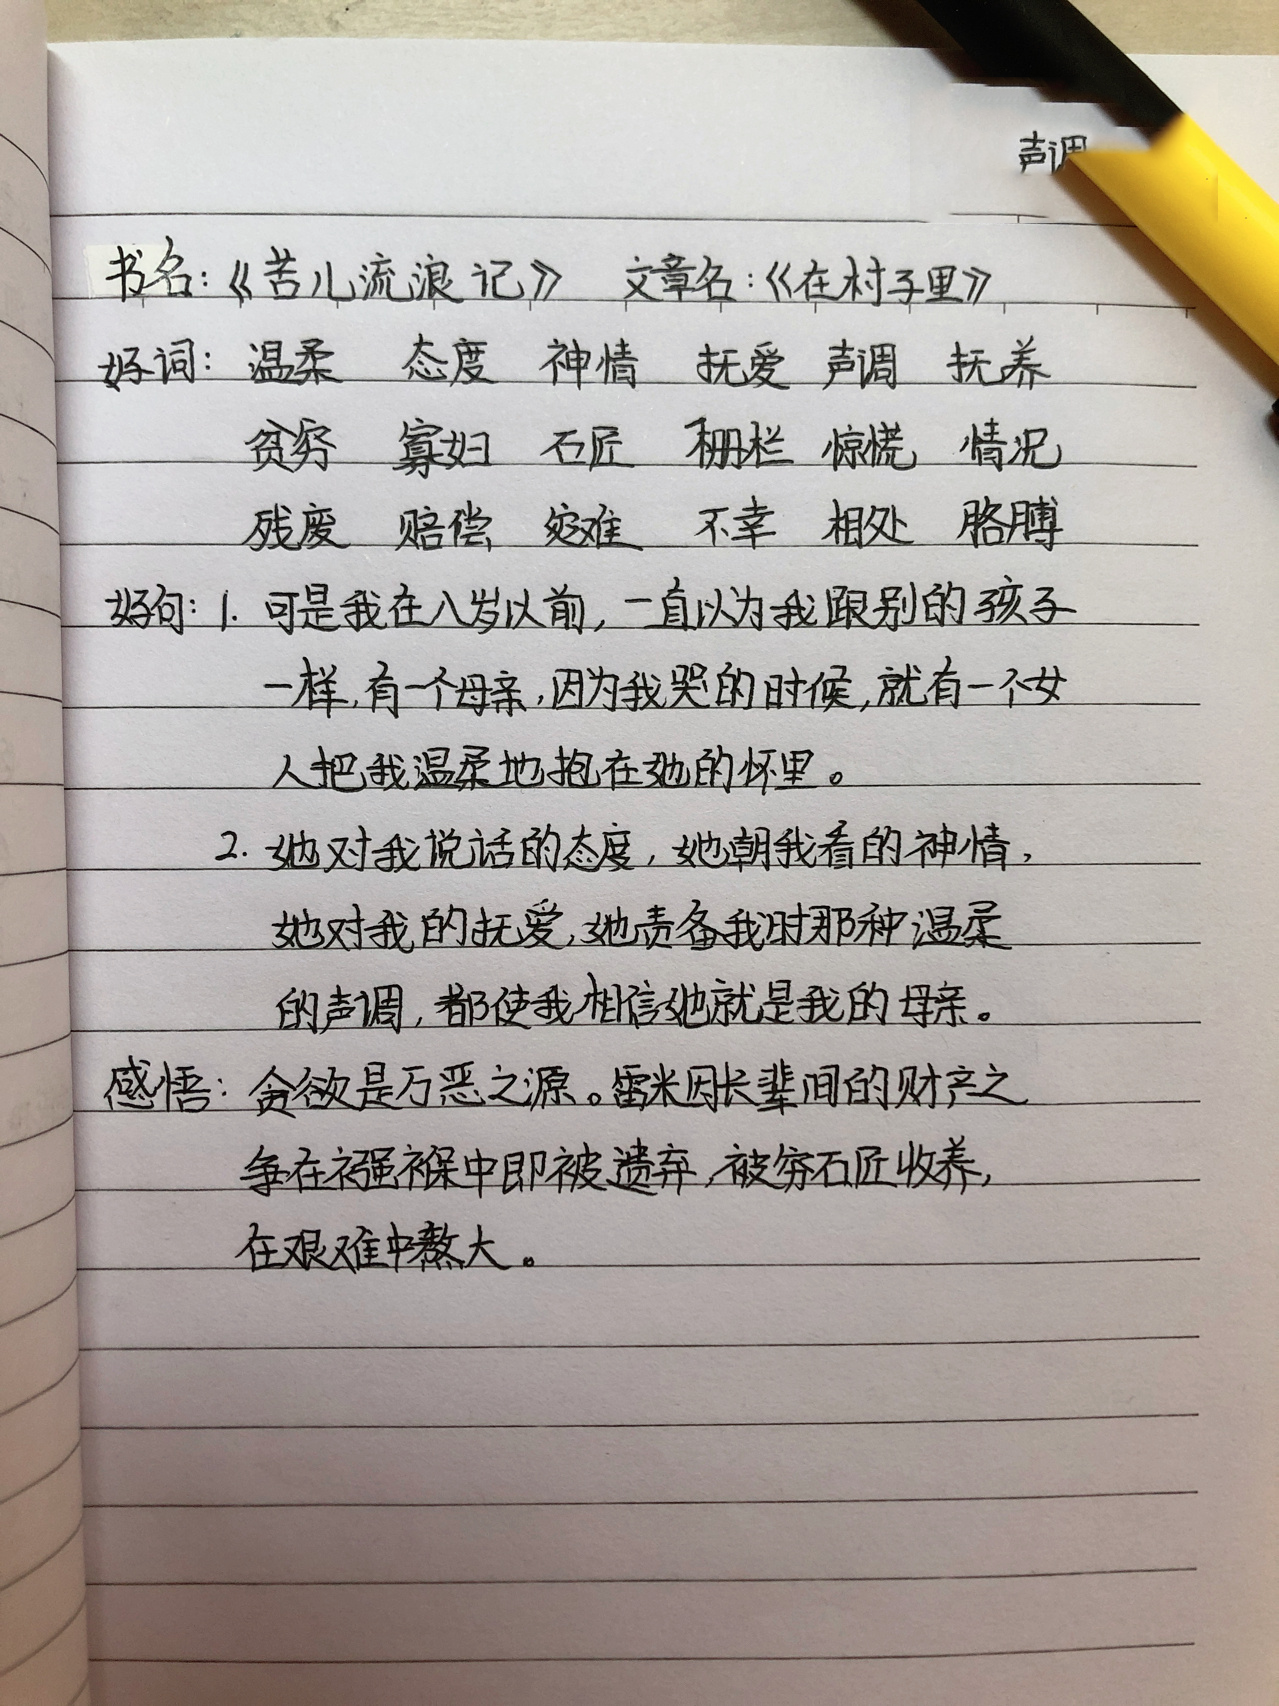 声调
书名：《苦儿流浪记》 文章名：《在村子里》
好词： 温柔 态度 神情 抚爱 声调 抚养
贫穷 寡妇 石匠 栅栏 惊慌 情况
残废 赔偿 灾难 不幸 相处 胳膊
好句：1. 可是我在八岁以前，一直以为我跟别的孩子
一样，有一个母亲，因为我哭的时候，就有一个女
人把我温柔地抱在她的怀里。
2. 她对我说话的态度，她朝我看的神情，
她对我的抚爱，她责备我时那种温柔
的声调，都使我相信她就是我的母亲。
感悟：贪欲是万恶之源。雷米因长辈间的财产之
争在襁褓中即被遗弃，被穷石匠收养，
在艰难中熬大。